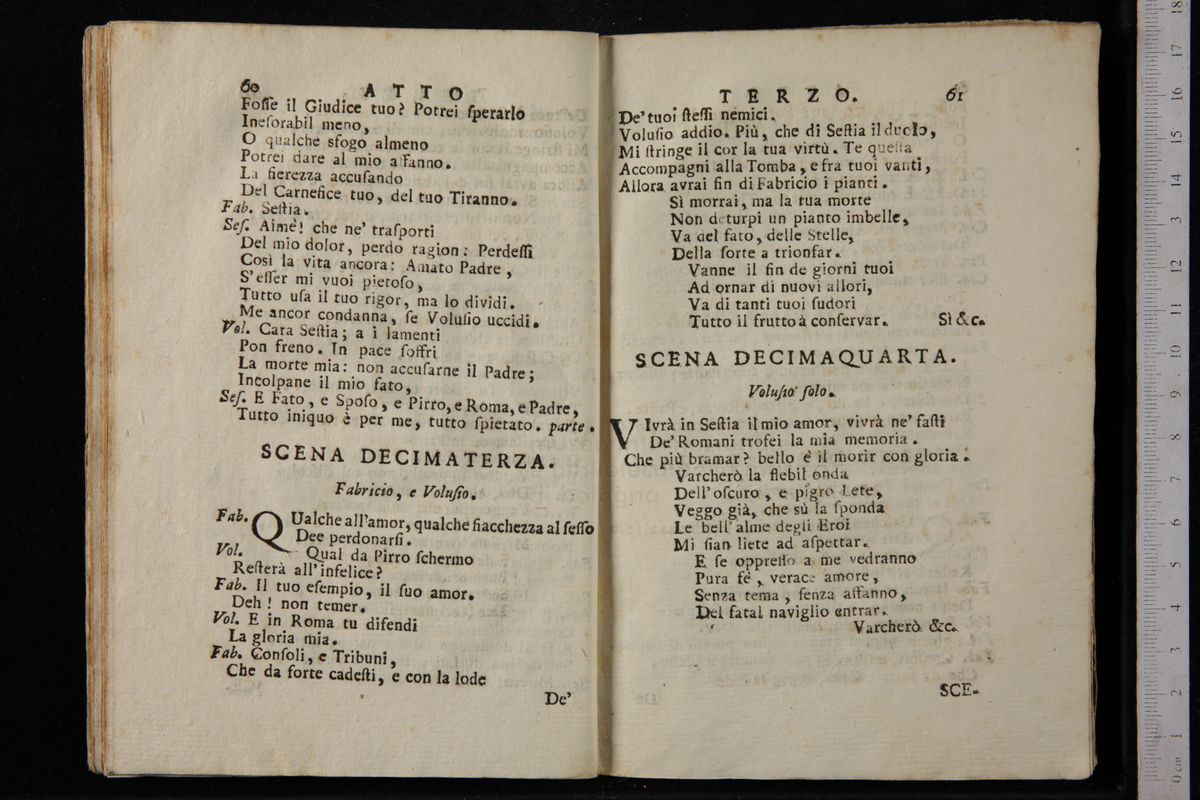 60 ATTO
Fosse il Giudice tuo? Potrei sperarlo
Inesorabil meno,
O qualche sfogo almeno
Potrei dare al mio affanno.
La fierezza accusando
Del Carnefice tuo, del tuo Tiranno.
Fab. Sestia.
Ses. Aimè! che ne' trasporti
Del mio dolor, perdo ragion: Perdessi
Così la vita ancora: Amato Padre,
S'esser mi vuoi pietoso,
Tutto usa il tuo rigor, ma lo dividi.
Me ancor condanna, se Volusio uccidi.
Vol. Cara Sestia; a i lamenti
Pon freno. In pace soffri
La morte mia: non accusarne il Padre;
Incolpane il mio fato,
Ses. E Fato, e Sposo, e Pirro, e Roma, e Padre,
Tutto iniquo è per me, tutto spietato. parte.
SCENA DECIMATERZA.
Fabricio, e Volusio.
Fab. QUalche all'amor, qualche fiacchezza al sesso
Dee perdonarsi.
Vol. Qual da Pirro schermo
Resterà all'infelice?
Fab. Il tuo esempio, il suo amor.
Deh! non temer.
Vol. E in Roma tu difendi
La gloria mia.
Fab. Consoli, e Tribuni,
Che da forte cadesti, e con la lode
De'
TERZO. 61
De' tuoi stessi nemici.
Volusio addio. Più, che di Sestia il duolo,
Mi stringe il cor la tua virtù. Te questa
Accompagni alla Tomba, e fra tuoi vanti,
Allora avrai fin di Fabricio i pianti.
Sì morrai, ma la tua morte
Non deturpi un pianto imbelle,
Va del fato, delle Stelle,
Della sorte a trionfar.
Vanne il fin de giorni tuoi
Ad ornar di nuovi allori,
Va di tanti tuoi sudori
Tutto il frutto à conservar. Sì &c.
SCENA DECIMAQUARTA.
Volusio solo.
VIvrà in Sestia il mio amor, vivrà ne' fasti
De' Romani trofei la mia memoria.
Che più bramar? bello è il morir con gloria.
Varcherò la flebil onda
Dell'oscuro, e pigro Lete,
Veggo già, che sù la sponda
Le bell'alme degli Eroi
Mi stan liete ad aspettar.
E se oppresso a me vedranno
Pura fè, verace amore,
Senza tema, senza affanno,
Del fatal naviglio entrar.
Varcherò &c.
SCE-
0 cm 1 2 3 4 5 6 7 8 9 10 11 12 13 14 15 16 17 18